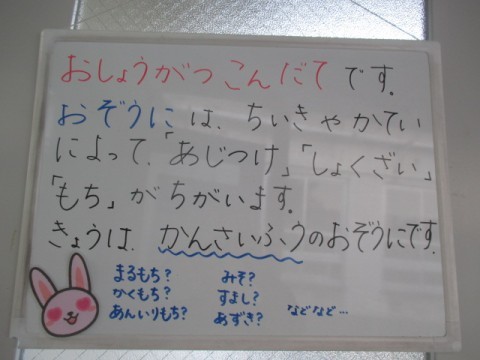 おしょうがつこんだてです。
おぞうには、ちいきやかてい
によって、「あじつけ」「しょくざい」
「もち」がちがいます。
きょうは、かんさいふうのおぞうにです。
まるもち?
かくもち?
あんいりもち?
みそ?
すまし?
あずき?
などなど…